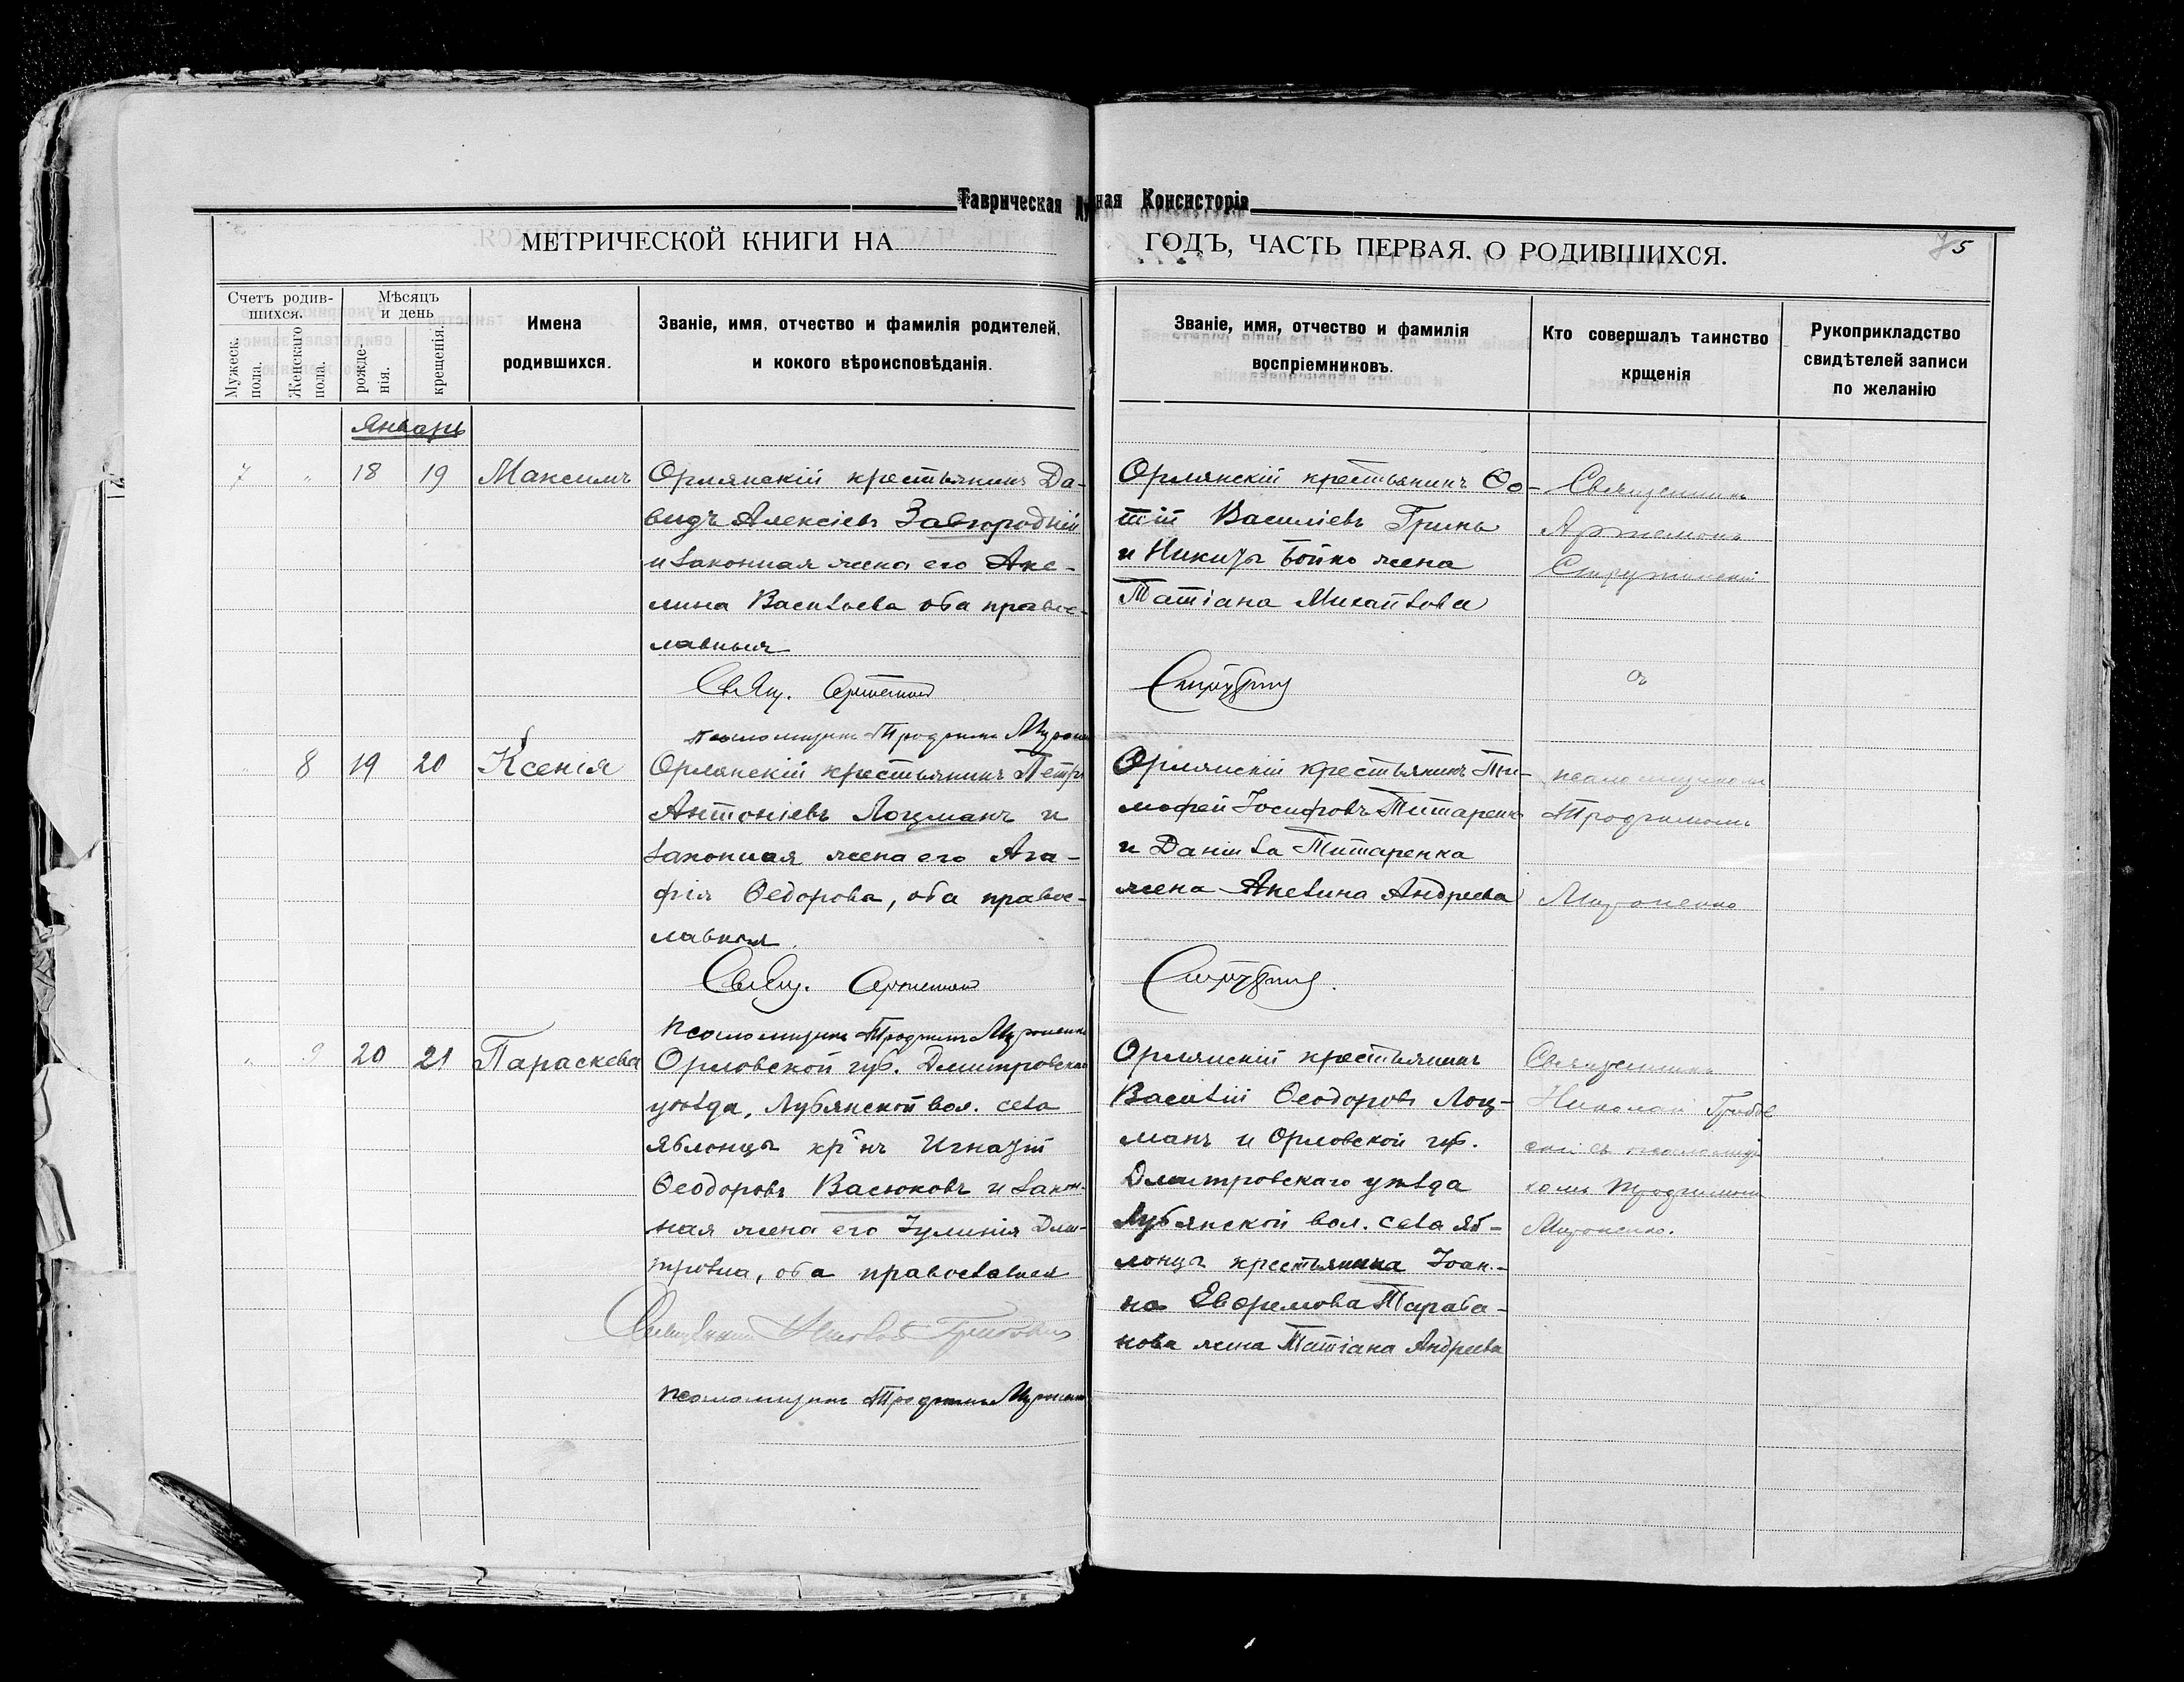 Таврическая Ду ная Консисторія
МЕТРИЧЕСКОЙ КНИГИ НА
ГОДЪ, ЧАСТЬ ПЕРВАЯ, О РОДИВШИХСЯ.
5
Счетъ родив-
шихся.
Мужеск.
пола.
Женскаго
пола.
Мѣсяцъ
и день
рожде-
нія.
крещенія.
Имена
родившихся.
Званіе, имя, отчество и фамилія родителей,
и кокого вѣроисповѣданія.
Званіе, имя, отчество и фамилія
воспріемниковъ.
Кто совершалъ таинство
крщенія
Рукоприкладство
свидѣтелей записи
по желанію
Январь
7 " 18 19 Максимъ
Орлянскій крестьянинъ Да-
видъ Алексіевъ Завгородній
и законная жена его Аке-
лина Васильева оба правос-
лавныя
Свящ. Артемонъ
псаломщикъ Трофимъ
Орлянскій крестьянинъ Ѳо-
тій Василіевъ Гринь
и Никиты Бойко жена
Татіана Михайлова
Священникъ
Артемонъ
" 8 19 20 Ксенія
Орлянскій крестьянинъ Петръ
Антоніевъ Лоцманъ и
законная жена его Ага-
фія Ѳедорова, оба правос-
лавныя.
Свящ. Артемонъ
Псаломщикъ Трофимъ
Орлянскій крестьянинъ Ти-
мофей Іосифовъ Титаренко
и Даніила Титаренка
жена Акелина Андреева
псаломщикомъ
Трофимомъ
" 9 20 21 Параскева
Орловской губ. Дмитровскаго
уѣзда, Лубянской вол. села
Яблонца кр-нъ Игнатій
Ѳеодоровъ Васюковъ и закон-
ная жена его Іулинія Дми-
тровна, оба православныя
Священникъ Николай
псаломщикъ Трофимъ
Орлянскій крестьянинъ
Василій Ѳеодоровъ Лоц-
манъ и Орловской губ.
Дмитровскаго уѣзда
Лубянской вол. села Яб-
лонца крестьянина Іоан-
на Евфимова Тараба-
нова жена Татіана Андреева
Священникъ
Николай
скій съ псаломщи
комъ Трофимомъ